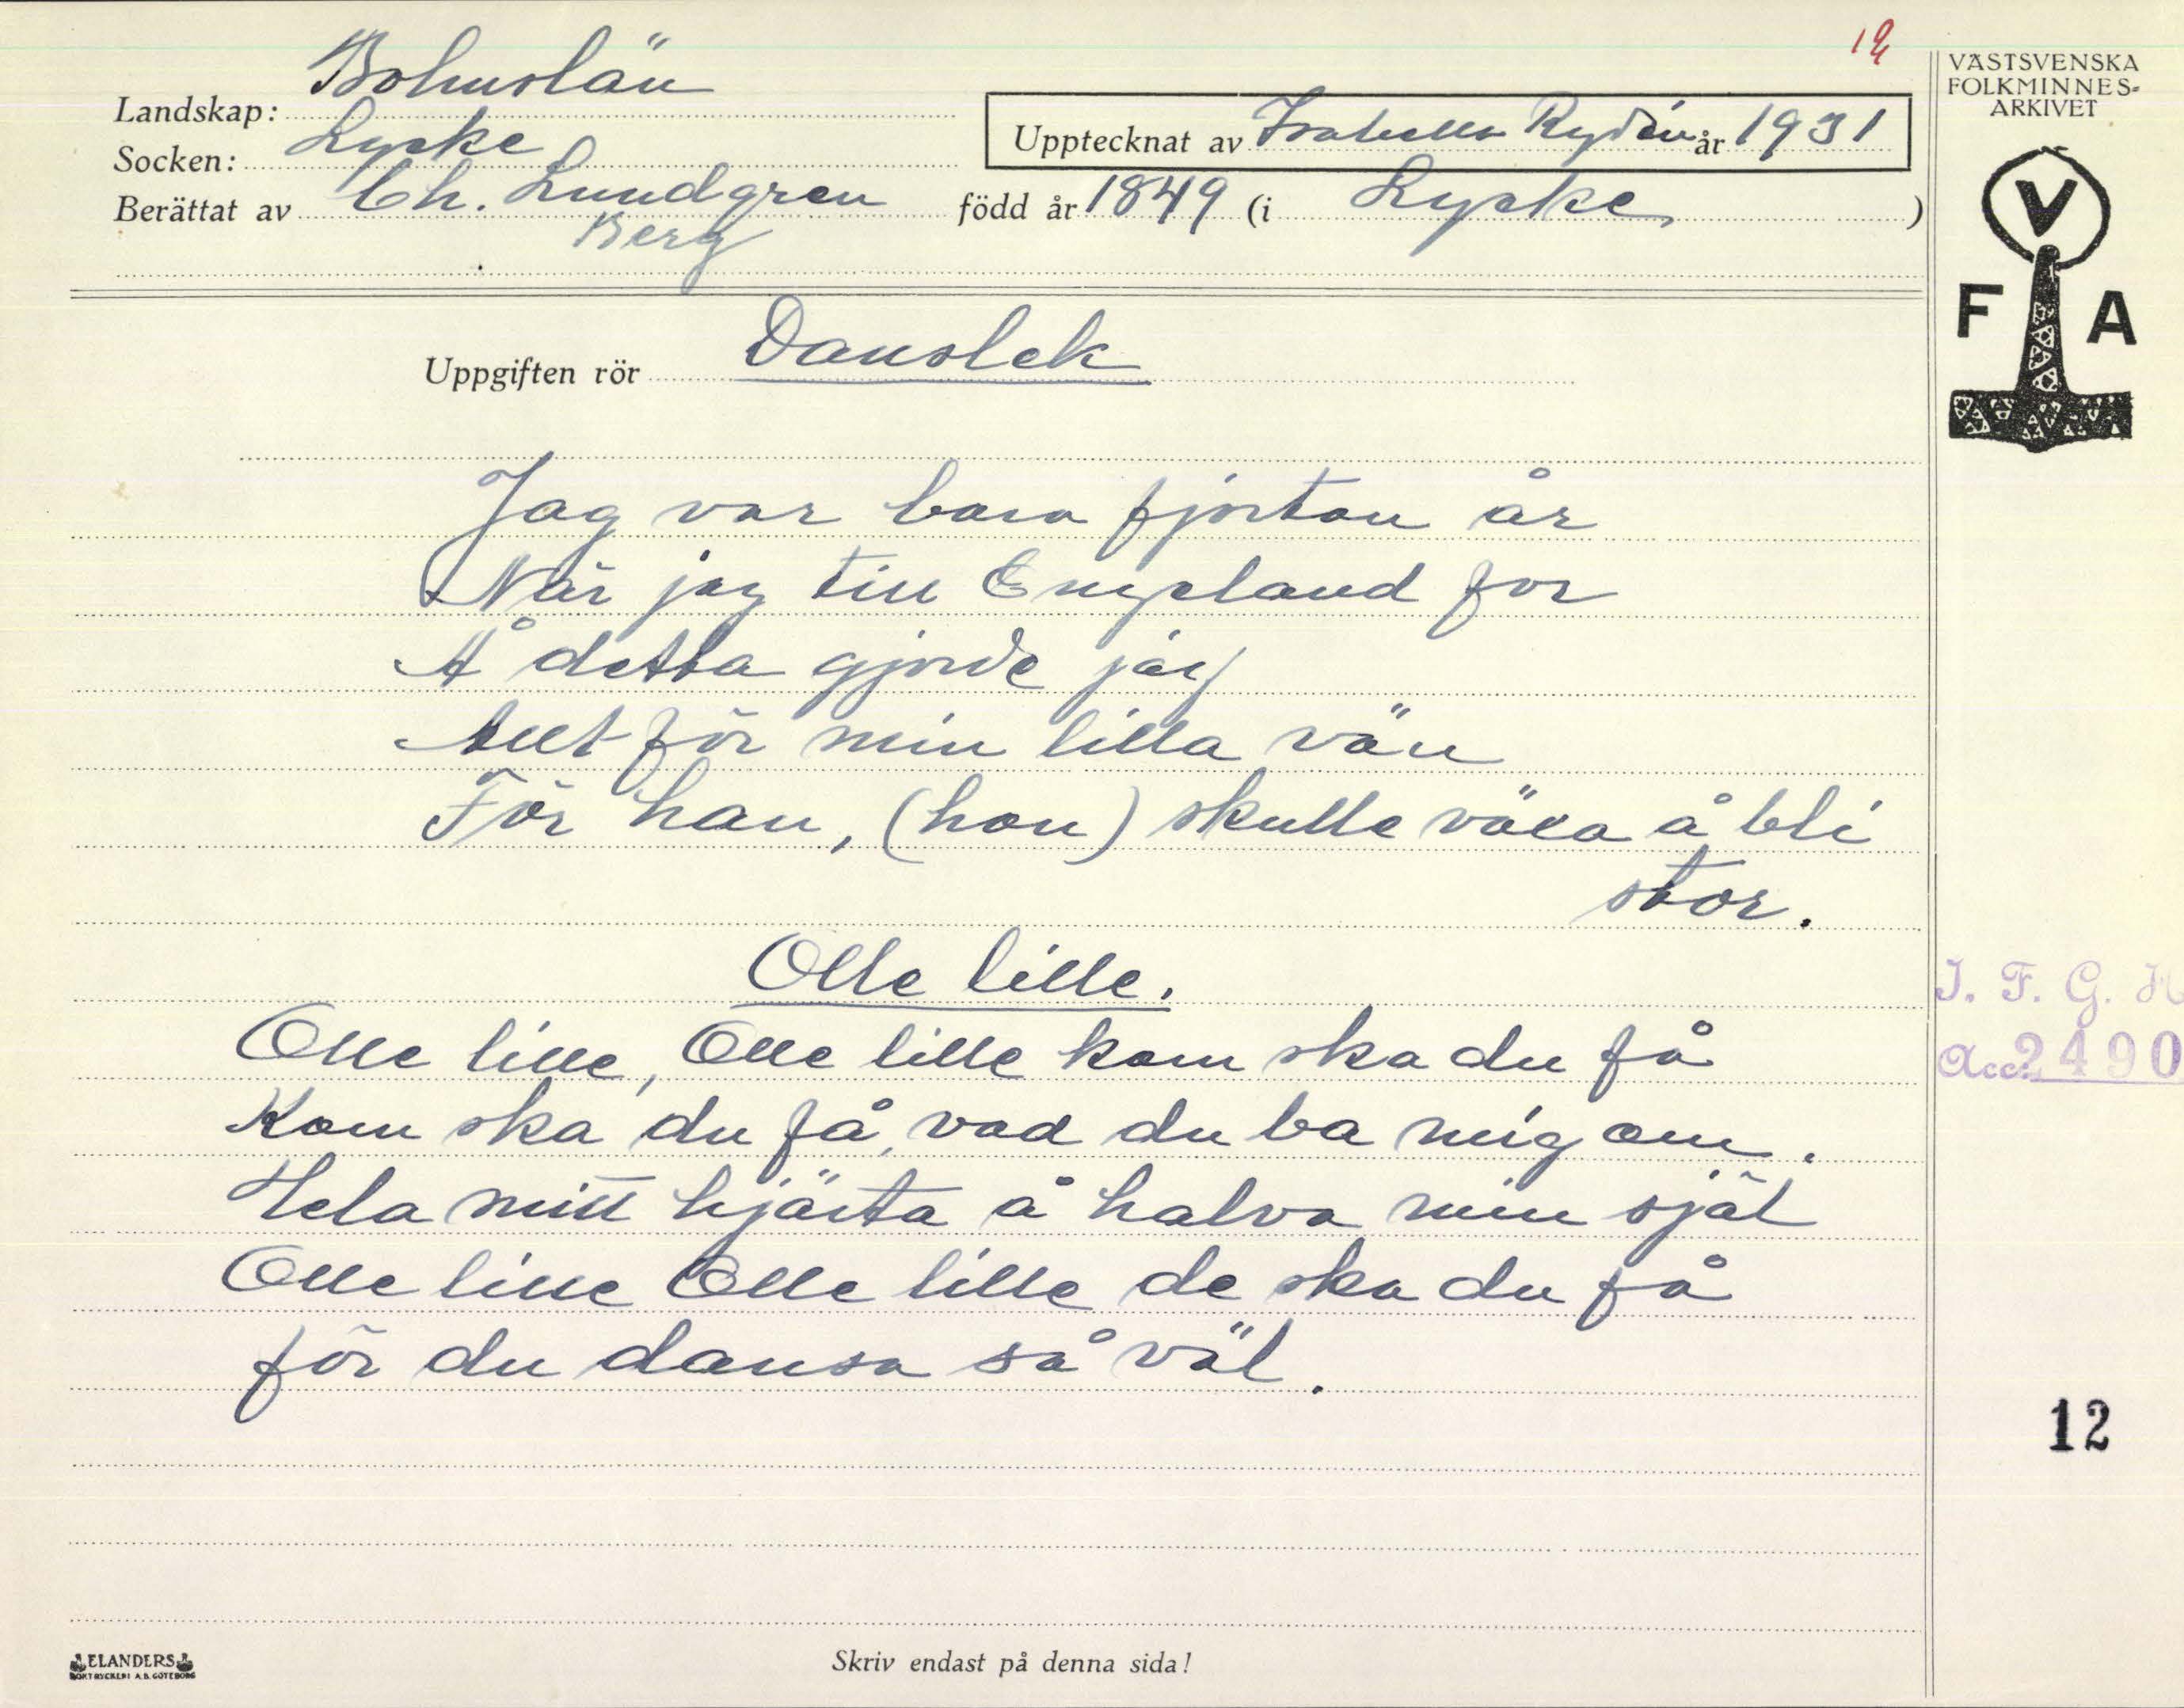 12
VÄSTSVENSKA
FOLKMINNES-
ARKIVET
V
F A
Landskap: Bohuslän
Socken: Lycke
Upptecknat av Isabella Rydén år 1931
Berättat av Ch. Lundgren född år 1849 (i Lycke )
Berg
Uppgiften rör Danslek
Jag var bara fjorton år
När jag till England for
Å detta gjorde jag
Allt för min lilla vän
För han, (hon) skulle växa å bli
stor.
Olle lille.
Olle lille, Olle lille kom ska du få
Kom ska du få, vad du ba mig om.
Hela mitt hjärta å halva min själ
Olle lille Olle lille de ska du få
för du dansa så väl.
I. F. G. H
Acc. 2490
12
ELANDERS
BOKTRYCKERI A.B. GÖTEBORG
Skriv endast på denna sida!